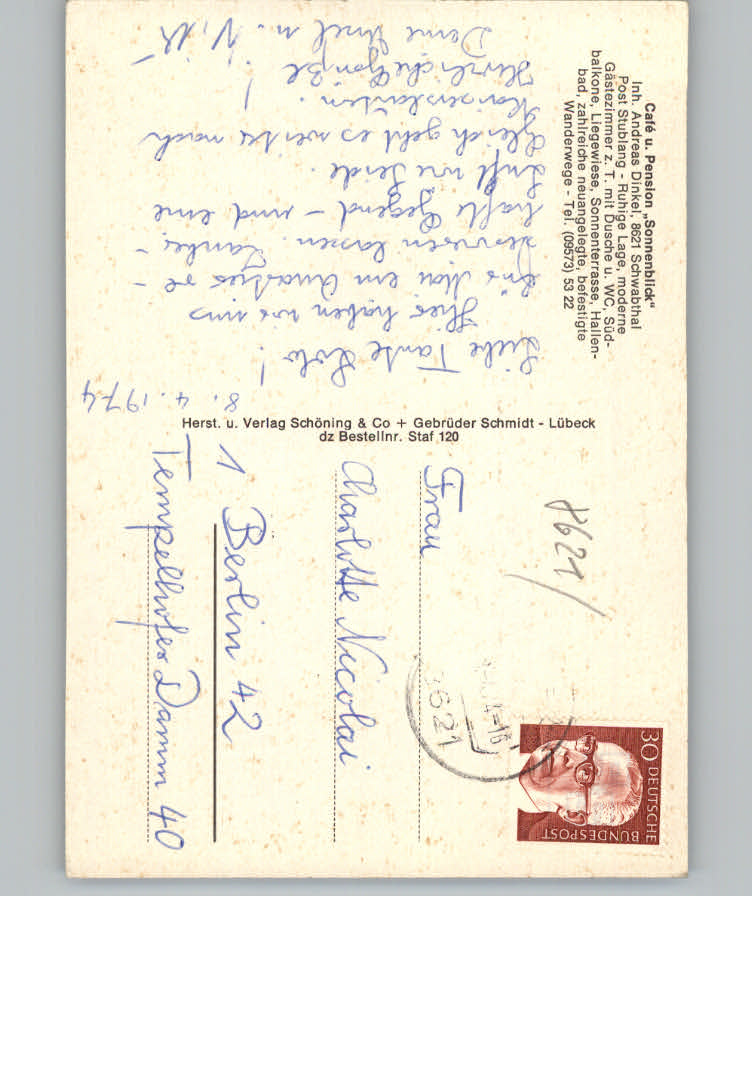 Café u. Pension „Sonnenblick“
Inh. Andreas Dinkel, 8621 Schwabthal
Post Stublang - Ruhige Lage, moderne
Gästezimmer z. T. mit Dusche u. WC, Süd-
balkone, Liegewiese, Sonnenterrasse, Hallen-
bad, zahlreiche neuangelegte, befestigte
Wanderwege - Tel. (09573) 53 22
8. 4. 1974
Liebe Tante Lolo!
Hier haben wir uns
ins Mai ein Quartier re-
servieren lassen. Zauber-
hafte Gegend - und eine
Luft wie Seide.
Gleich geht es weiter nach
Kaiserslautern.
Herzliche Grüße!
Deine Ursel u. Willi
Herst. u. Verlag Schöning & Co + Gebrüder Schmidt - Lübeck
dz Bestellnr. Staf 120
8621
30 DEUTSCHE
BUNDESPOST
8621
Frau
Charlotte Nicolai
1 Berlin 42
Tempelhofer Damm 40